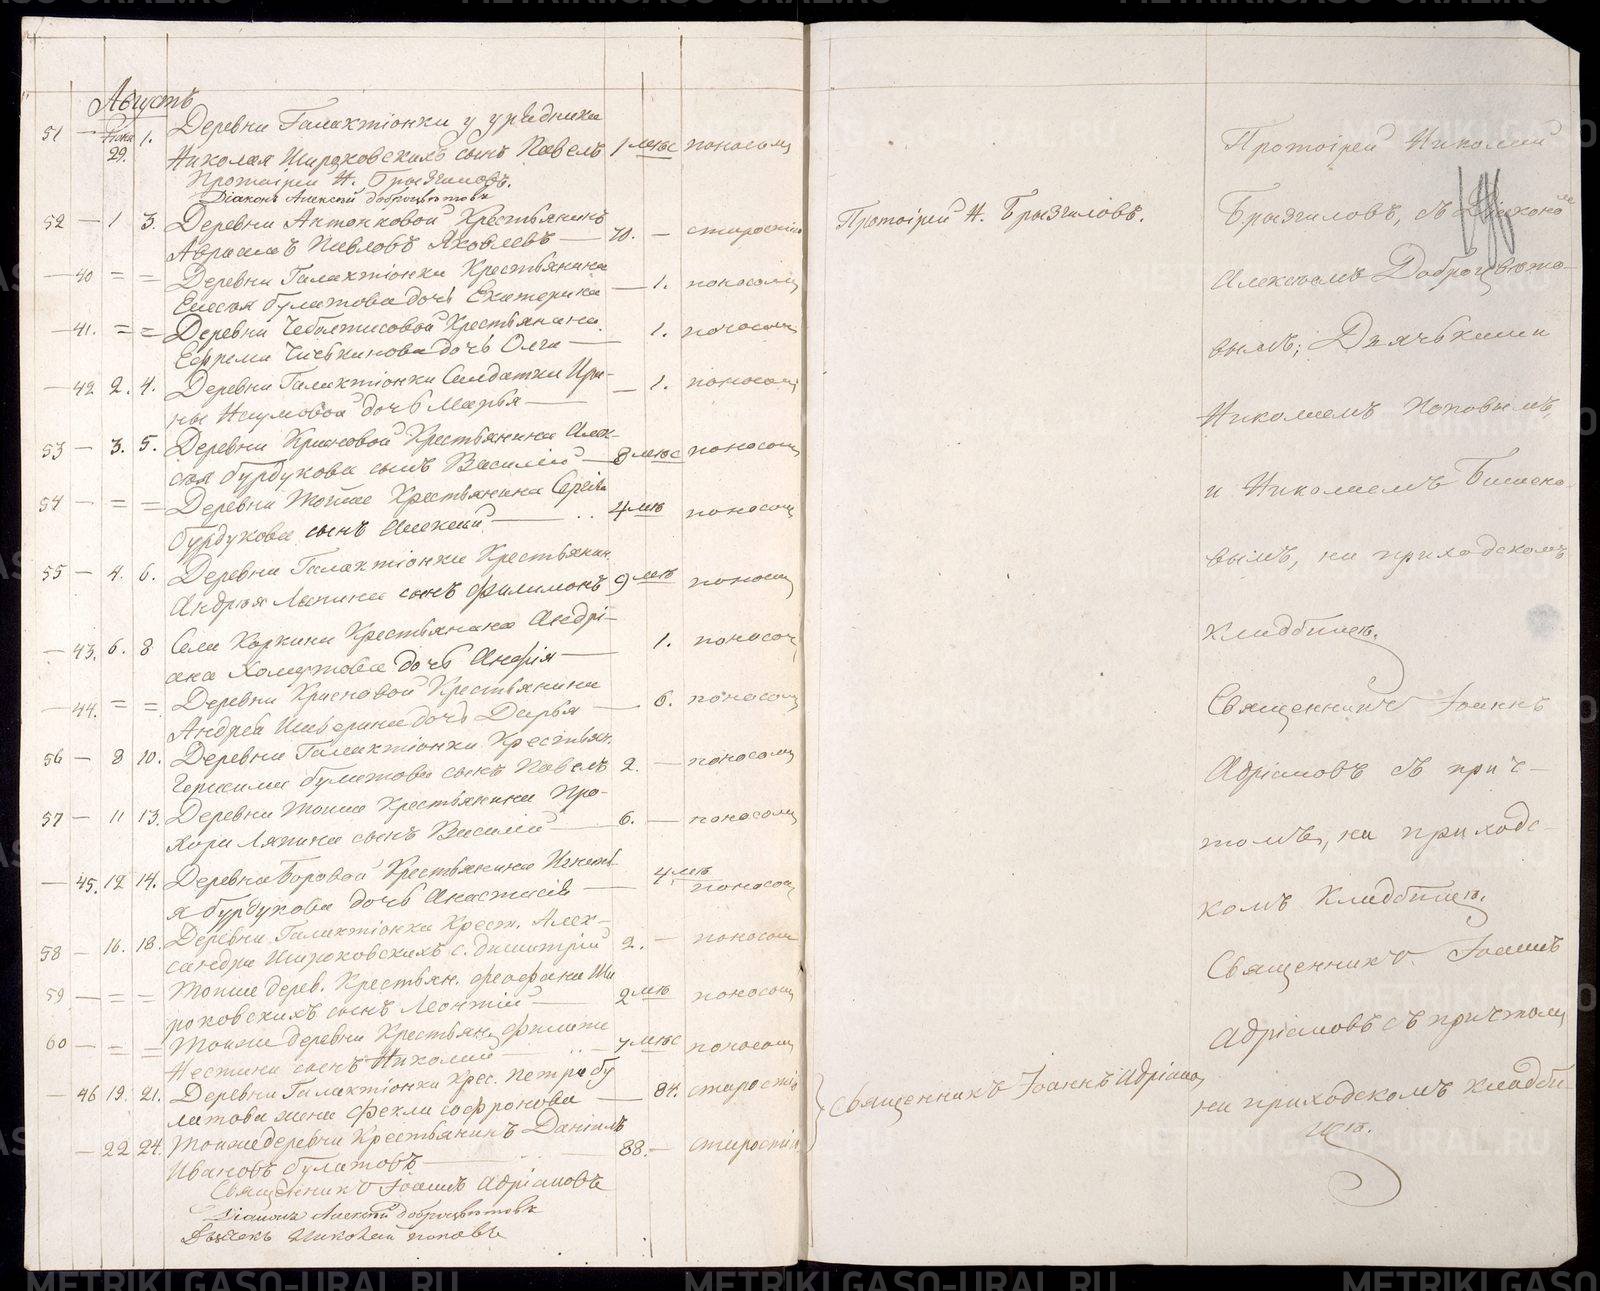 Августъ
51 — Іюля 29. 1. Деревни Галактіонки у урядника
Николая Широковскихъ сынъ Павелъ 1 мѣс поносомъ
Протоіерей Н. Брызгаловъ.
Діаконъ Алексій Доброцвѣтовъ
52 — 1 3. Деревни Антонковой Крестьянинъ
Авраамъ Павловъ Яковлевъ — 70. — старостію
— 40 = = Деревни Галактіонки Крестьянина
Елисея Булатова дочь Екатерина — 1. поносомъ
— 41. = = Деревни Крестьянина
Ефрема дочь Олга — 1. поносомъ
— 42 2. 4. Деревни Галактіонки Солдатки Ири-
ны Наумовой дочь Марья — 1. поносомъ
53 — 3. 5. Деревни Крестьянина Алек-
сѣя Бурдукова сынъ Василій — 8 мѣс поносомъ
54 — = = Деревни Тойже Крестьянина Сергѣя
Бурдукова сынъ Алексій — 4 мѣс поносомъ
55 — 4. 6. Деревни Галактіонки Крестьянин.
Андрея Лапина сынъ Филимонъ 9 мѣс поносом
— 43. 6. 8 Села Коркина Крестьянина Андрі-
ана Хомутова дочь — 1. поносом
— 44. = = Деревни Крестьянина
Андрея Шаверина дочь Дарья — 6. поносомъ
56 — 8 10. Деревни Галактіонки Крестьян.
Герасима Булатова сынъ Павелъ 2. — поносомъ
57 — 11 13. Деревни Тойже Крестьянина Про-
хора Ляпина сынъ Василій — 6. — поносомъ
— 45. 12 14. Деревни Боровой Крестьянина Игнать-
я Бурдукова дочь Анастасія — 4 мѣс поносом
58 — 16. 18. Деревни Галактіонки Крест. Алек-
сандра Широковскихъ с. Димитрій 2. — поносом
59 — = = Тойже дерев. Крестьян. Феофана Ши
роковскихъ сынъ Леонтій — 2 мѣс поносом
60 — = = Тойже деревни Крестьян. Филата
сынъ Николай 7 мѣс поносомъ
— 46 19. 21. Деревни Галактіонки Крес. Петра Бу
латова жена Фекла Софронова — 84. старостію
— 22 24. Тойже деревни Крестьянинъ Даніилъ
Ивановъ Булатовъ — 88. — старостію
Священникъ Іоаннъ Адріановъ
Діаконъ Алексій Доброцвѣтовъ
Дьячекъ Николай Поповъ
Протоіерей Н. Брызгаловъ.
Священникъ Іоаннъ Адріанов
Протоіерей Николай
Брызгаловъ, съ Діакономъ
Алексѣемъ Доброцвѣто-
вымъ; Дьячьками
Николаемъ Поповымъ,
и Николаемъ
вымъ, на приходскомъ
кладбищѣ.
Священникъ Іоаннъ
Адріановъ съ прич-
томъ, на приходс-
комъ Кладбищѣ.
Священникъ Іоаннъ
Адріановъ съ причтомъ
на приходскомъ кладби-
щѣ.